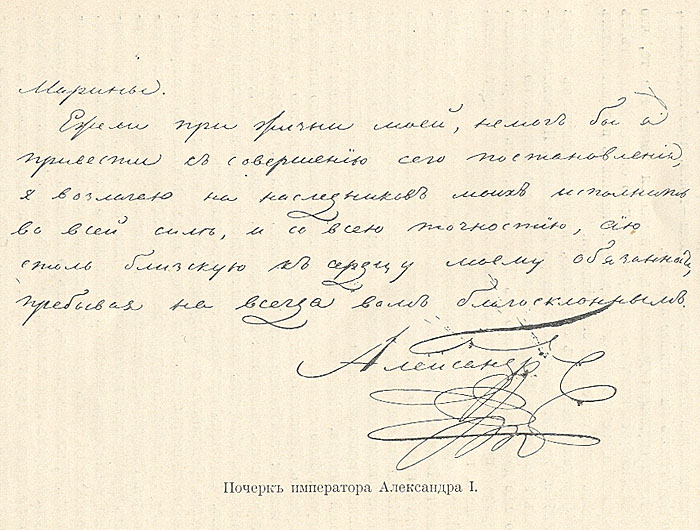 Марины.
Ежели при жизни моей, немогъ бы я
привести къ совершенію сего постановленія,
я возлагаю на наследниковъ моихъ исполнить
во всей силѣ, и со всею точностію, сію
столь близскую къ сердцу моему обязанность,
пребывая на всегда вамъ благосклоннымъ.
Александръ
Почеркъ императора Александра I.